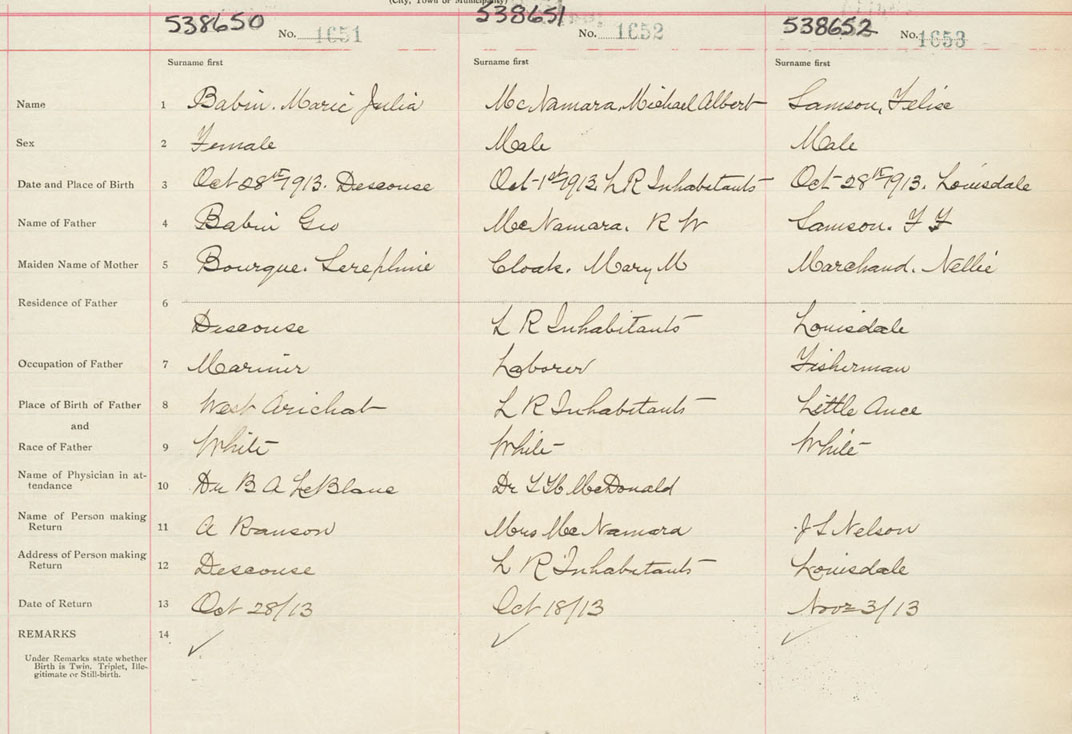 (City, Town or Municipality)
538650 No. 1651 538651 No. 1652 538652 No. 1653
Surname first Surname first Surname first
Name 1 Babin. Marie Julia McNamara, Michael Albert Samson, Felise
Sex 2 Female Male Male
Date and Place of Birth 3 Oct 28th 1913. Descouse Oct 1st 1913, L R Inhabitants Oct 28th 1913. Louisdale
Name of Father 4 Babin Geo McNamara. R W Samson. F F
Maiden Name of Mother 5 Bourque. Serephine Cloak. Mary M Marchand. Nellie
Residence of Father 6
Descouse L R Inhabitants Louisdale
Occupation of Father 7 Mariner Laborer Fisherman
Place of Birth of Father 8 West Arichat L R Inhabitants Little Ance
and
Race of Father 9 White White White
Name of Physician in at-
tendance 10 Dr B A LeBlanc Dr McDonald
Name of Person making
Return 11 A Ranson Mrs McNamara J L Nelson
Address of Person making
Return 12 Descouse L R Inhabitants Louisdale
Date of Return 13 Oct 28/13 Oct 18/13 Nov 3/13
REMARKS 14
Under Remarks state whether
Birth is Twin. Triplet, Ille-
gitimate or Still-birth.